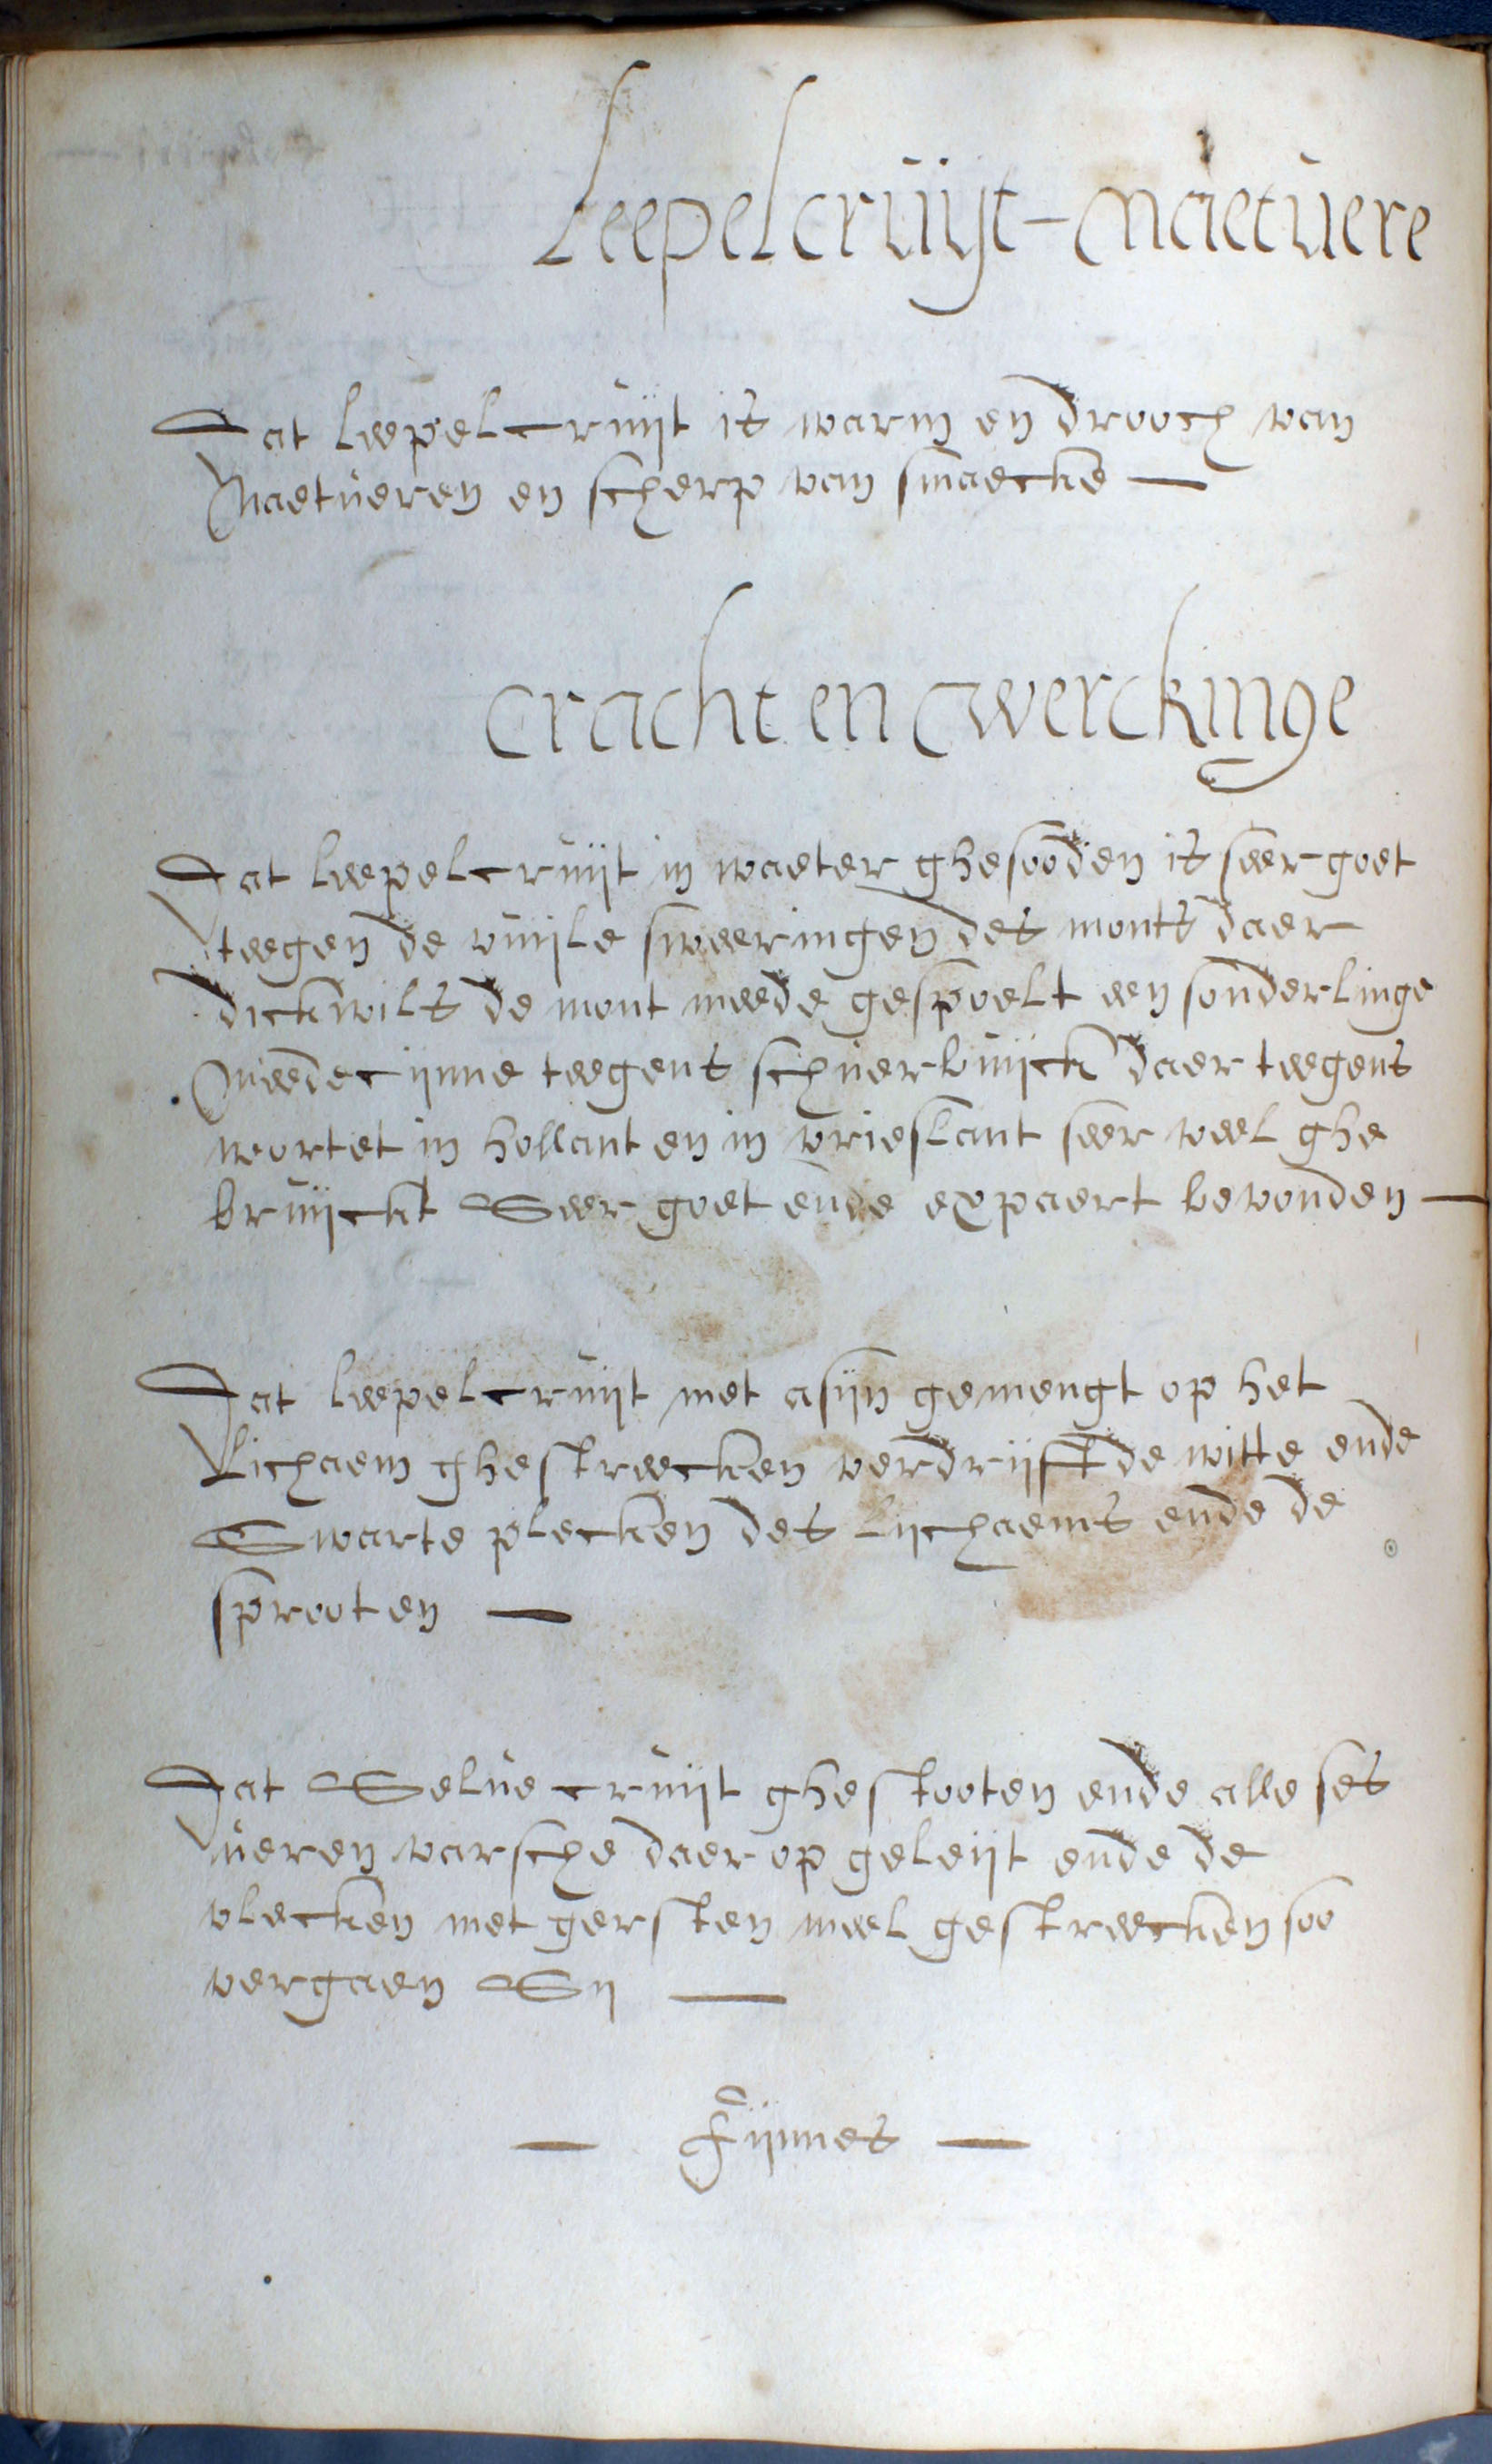 Leepelcruijt - Naetuere
Dat leepelcruijt is warm en drooch van
Naetueren en scherp van smaecke —
cracht en werckinge
Dat leepelcruijt in waeter ghesooden is seer goet
teegen de vuijle sweeringen des monts daer
dickwils de mont meede gespoelt een sonderlinge
Meedecijnne teegens schuerbuijck daer teegens
wortet in hollant en in vrieslant seer veel ghe
bruijckt Seer goet ende expaert bevonden —
Dat leepelcruijt met asijn gemengt op het
Lichaem ghestreecken verdrijft de witte ende
Swarte plecken des lijchaems ende de
sprooten —
Dat Selue cruijt ghestooten ende alle ses
ueren varsche daer op geleijt ende de
vlecken met gersten meel gestreecken soo
vergaen Sij —
— Fijnnes —